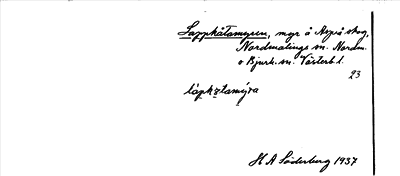 Lappkåtamyren, myr å Aspås skog,
Nordmalings sn. Nordm.
o Bjurh. sn. Västerb l.
23
lápkǫtamýra
H A Söderberg 1937